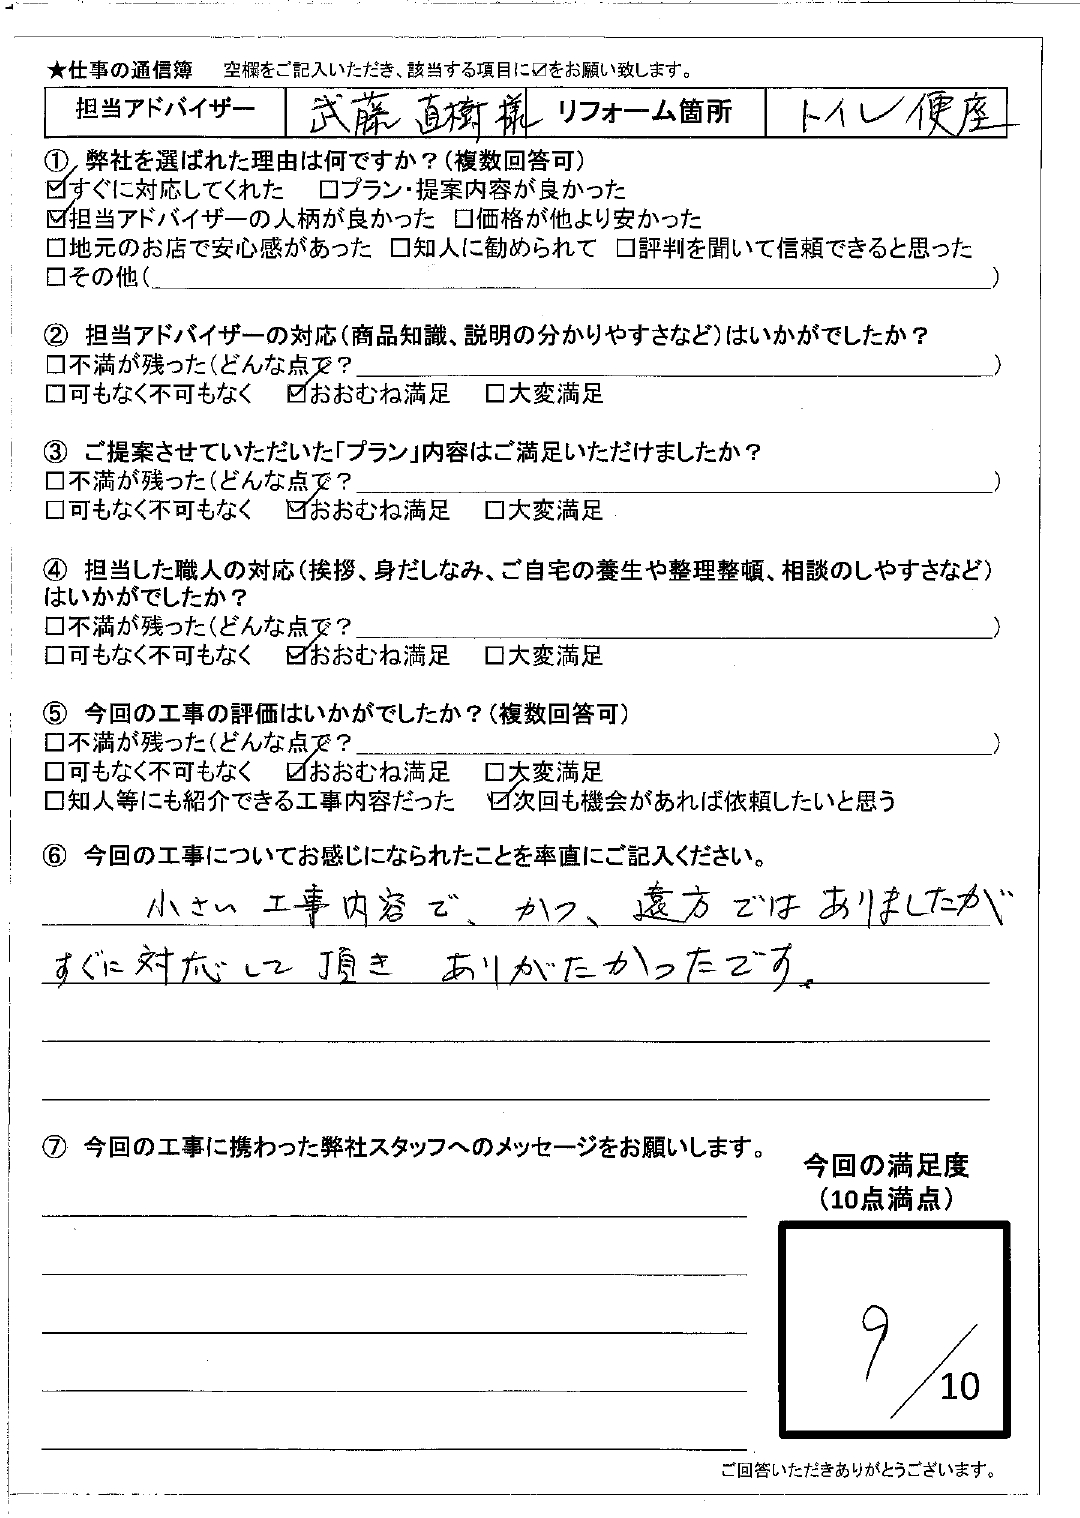 ★仕事の通信簿　空欄をご記入いただき、該当する項目に☑をお願い致します。
担当アドバイザー　武藤 直樹 様　リフォーム箇所　トイレ便座
① 弊社を選ばれた理由は何ですか？(複数回答可)
☑すぐに対応してくれた　□プラン・提案内容が良かった
☑担当アドバイザーの人柄が良かった　□価格が他より安かった
□地元のお店で安心感があった　□知人に勧められて　□評判を聞いて信頼できると思った
□その他(　)
② 担当アドバイザーの対応(商品知識、説明の分かりやすさなど)はいかがでしたか？
□不満が残った(どんな点で？　)
□可もなく不可もなく　☑おおむね満足　□大変満足
③ ご提案させていただいた「プラン」内容はご満足いただけましたか？
□不満が残った(どんな点で？　)
□可もなく不可もなく　☑おおむね満足　□大変満足
④ 担当した職人の対応(挨拶、身だしなみ、ご自宅の養生や整理整頓、相談のしやすさなど)
はいかがでしたか？
□不満が残った(どんな点で？　)
□可もなく不可もなく　☑おおむね満足　□大変満足
⑤ 今回の工事の評価はいかがでしたか？(複数回答可)
□不満が残った(どんな点で？　)
□可もなく不可もなく　☑おおむね満足　□大変満足
□知人等にも紹介できる工事内容だった　☑次回も機会があれば依頼したいと思う
⑥ 今回の工事についてお感じになられたことを率直にご記入ください。
小さい工事内容で、かつ、遠方ではありましたが
すぐに対応して頂き ありがたかったです。
⑦ 今回の工事に携わった弊社スタッフへのメッセージをお願いします。
今回の満足度
(10点満点)
9／10
ご回答いただきありがとうございます。